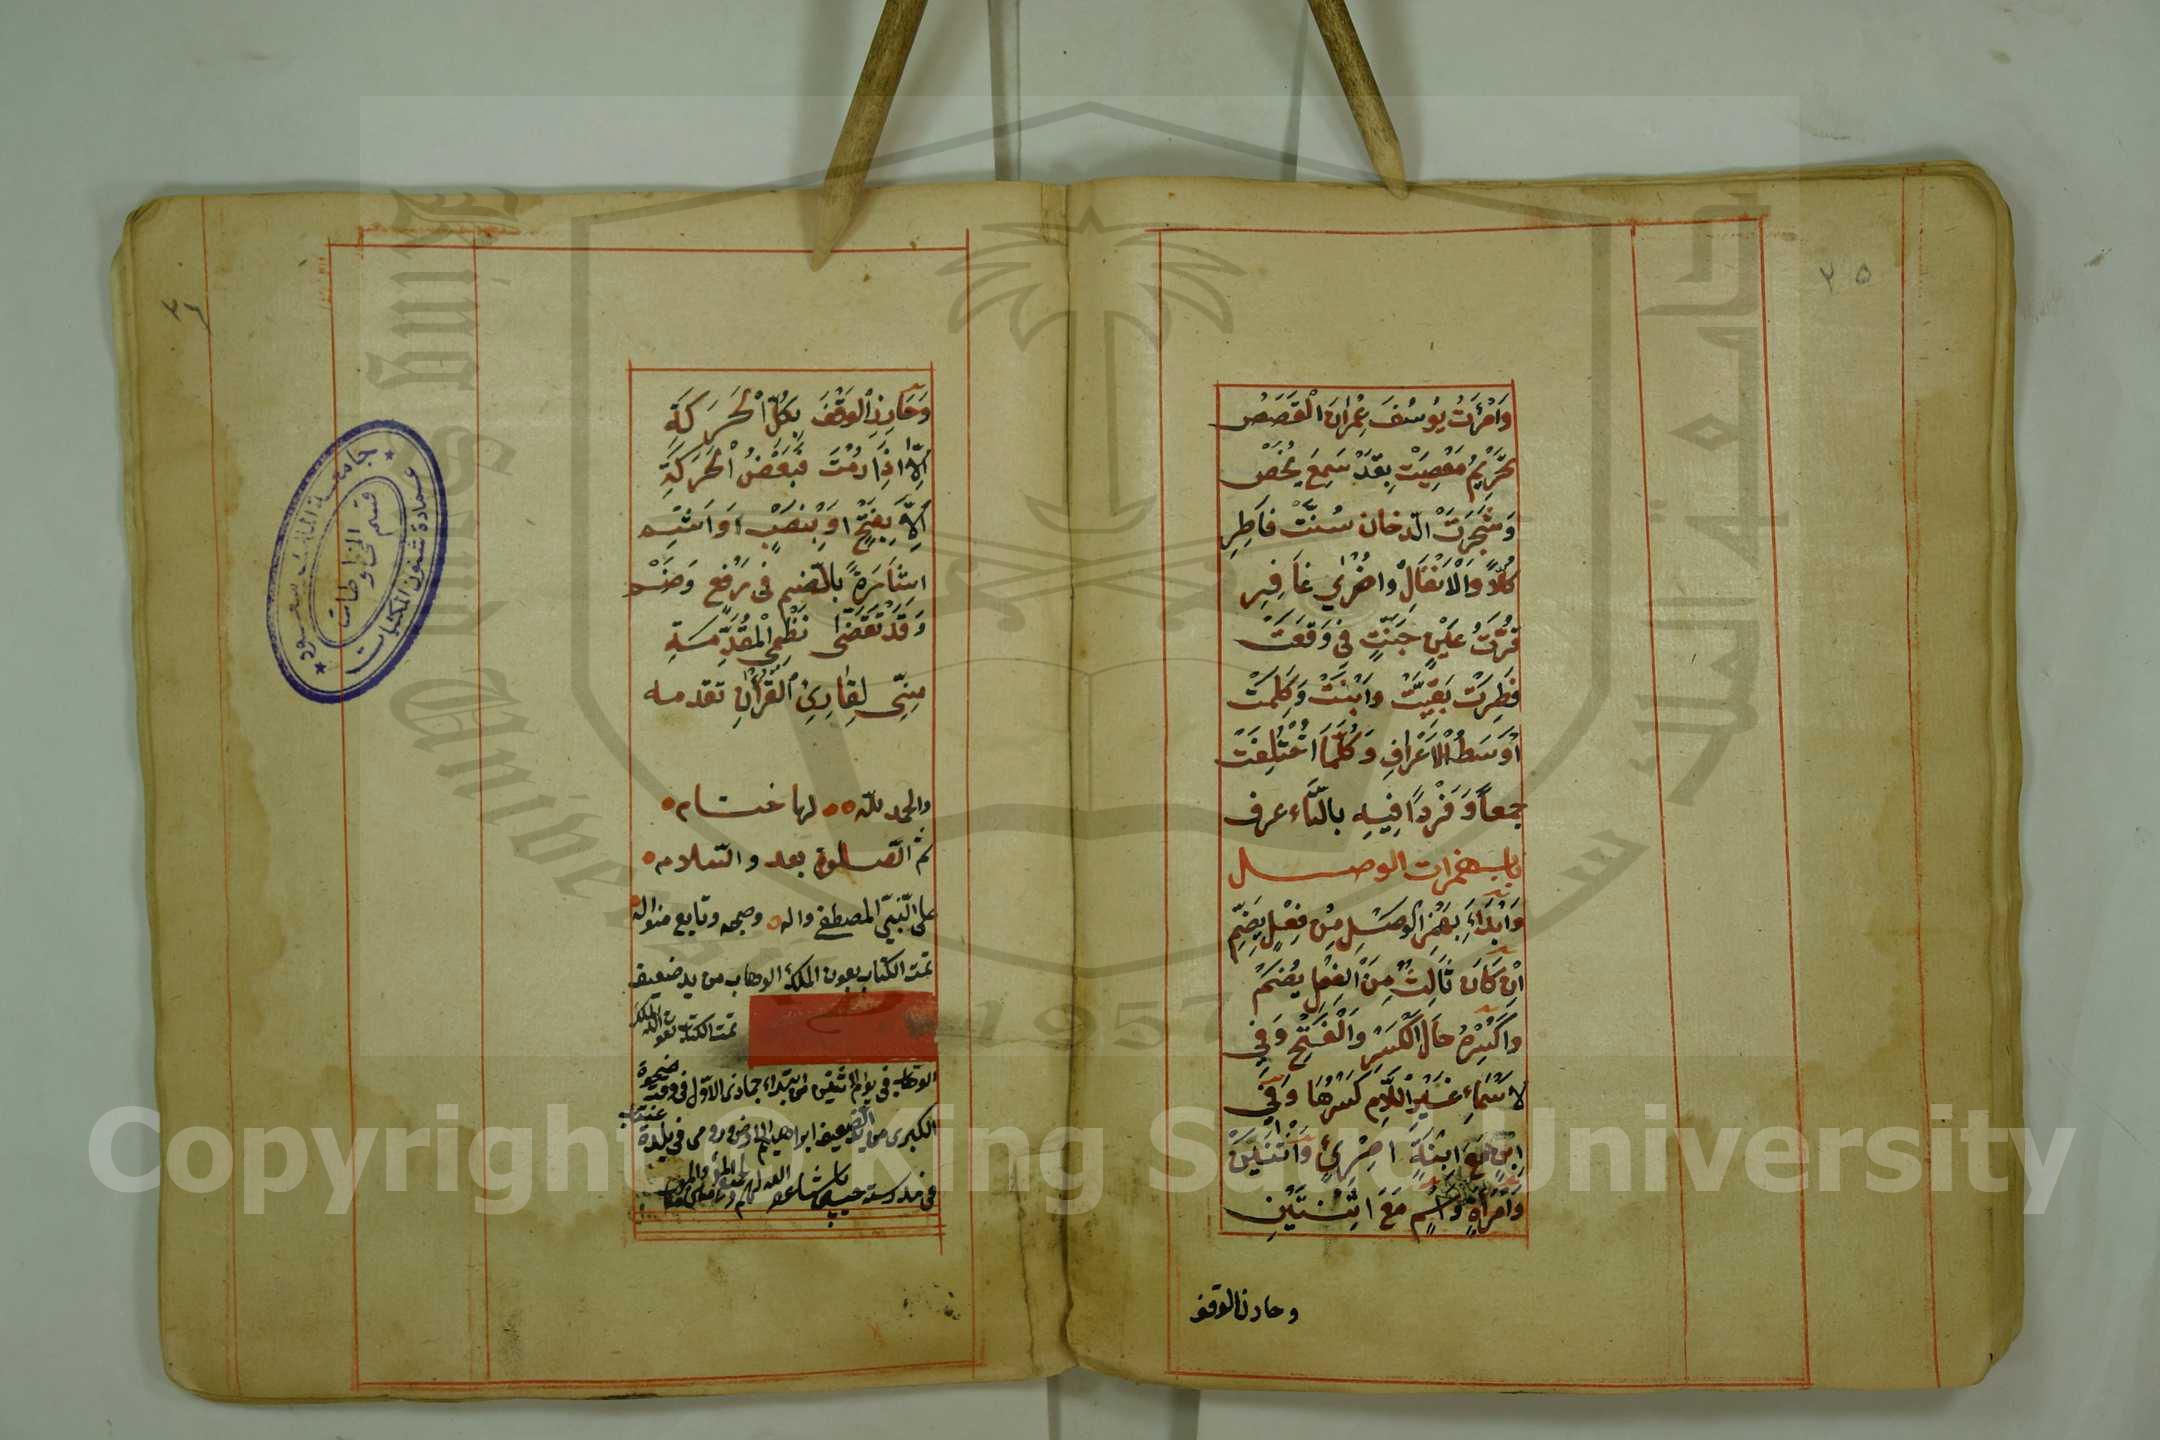 ٢٥
وَامْرَأَتُ يُوسُفَ عِمْرَانَ الْقَصَصْ
تَحْرِيمُ مَعْصِيَتْ بِقَدْ سَمِعْ يُخَصْ
وَشَجَرَتَ الدّخان سُنَّتْ فَاطِرِ
كُلاًّ وَالْاَنْفَالْ وَاخْرٰي غَافِرِ
قُرَّتُ عَيْنٍ جَنَّتٍ فِي وَقَعَتْ
فِطْرَتْ بَقِيَّتْ وَابْنَتْ وَكَلِمَتْ
اَوْسَطُ الْاَعْرَافِ وَكُلُّمَا اخْتُلِفَتْ
جمعاً وَفَرْدًا فِيهِ بالتَّاء عرف
باب همزات الوصل
وَابْدَاْ بِهَمْزِ الْوَصْلِ مِنْ فِعْلٍ بِضَمّ
اِنْ كَانَ ثَالِثٌ مِنَ الْفِعْلِ يُضَمْ
وَاكْسِرْهُ حَالَ الْكَسْرِ وَالْفَتْحِ وَفِي
لاَسْمَاءِ غَيْرِ اللَّامِ كَسْرُهَا وَفِي
ابْنٍ مَعَ ابْنَةِ امْرِئٍ وَاثْنَيْنِ
وَامْرَأَةٍ وَاسْمٍ مَعَ اثْنَتَيْنِ
وحاذر الوقف
٣٦
وَحَاذِرِ الْوَقْفَ بِكُلِّ الْحَرَكَةْ
اِلَّا اِذَا رُمْتَ فَبَعْضُ الْحَرَكَةِ
اِلاَّ بِفَتْحٍ اَوْ بِنَصْبٍ اوَاَشِمْ
اِشَارَةً بالضّم فى رَفْعٍ وَضَمْ
وَقَدْ تَقَضّٰى نَظْمِي الْمُقَدِّمَةِ
مِنِّى لِقَارِئِ الْقُرْاٰنِ تقدمه
والحمد لله لها ختام
ثم الصلوة بعد والسّلام
على النّبيّ المصطفى واله وصحبه وتابع منواله
تمت الكتاب بعون الملك الوهاب من يد ضعيف
تمت الكتاب بعون الله الملك
الوهاب فى يوم الاثنين من ابتداء جماذى الاوّل فى وقت ضحوة
الكبرى من يد الضعيف ابراهيم فى بلدة
فى مدرسة
جامعة الملك سعود
عمادة شئون المكتبات
قسم المخطوطات
King Saud University
1957
جامعة الملك سعود
Copyright © King Saud University